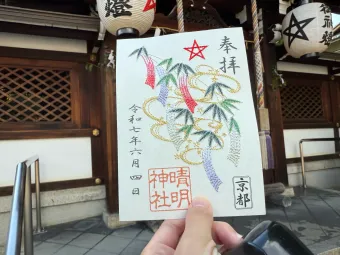 奉拝
令和七年六月四日
晴明
神社
京都